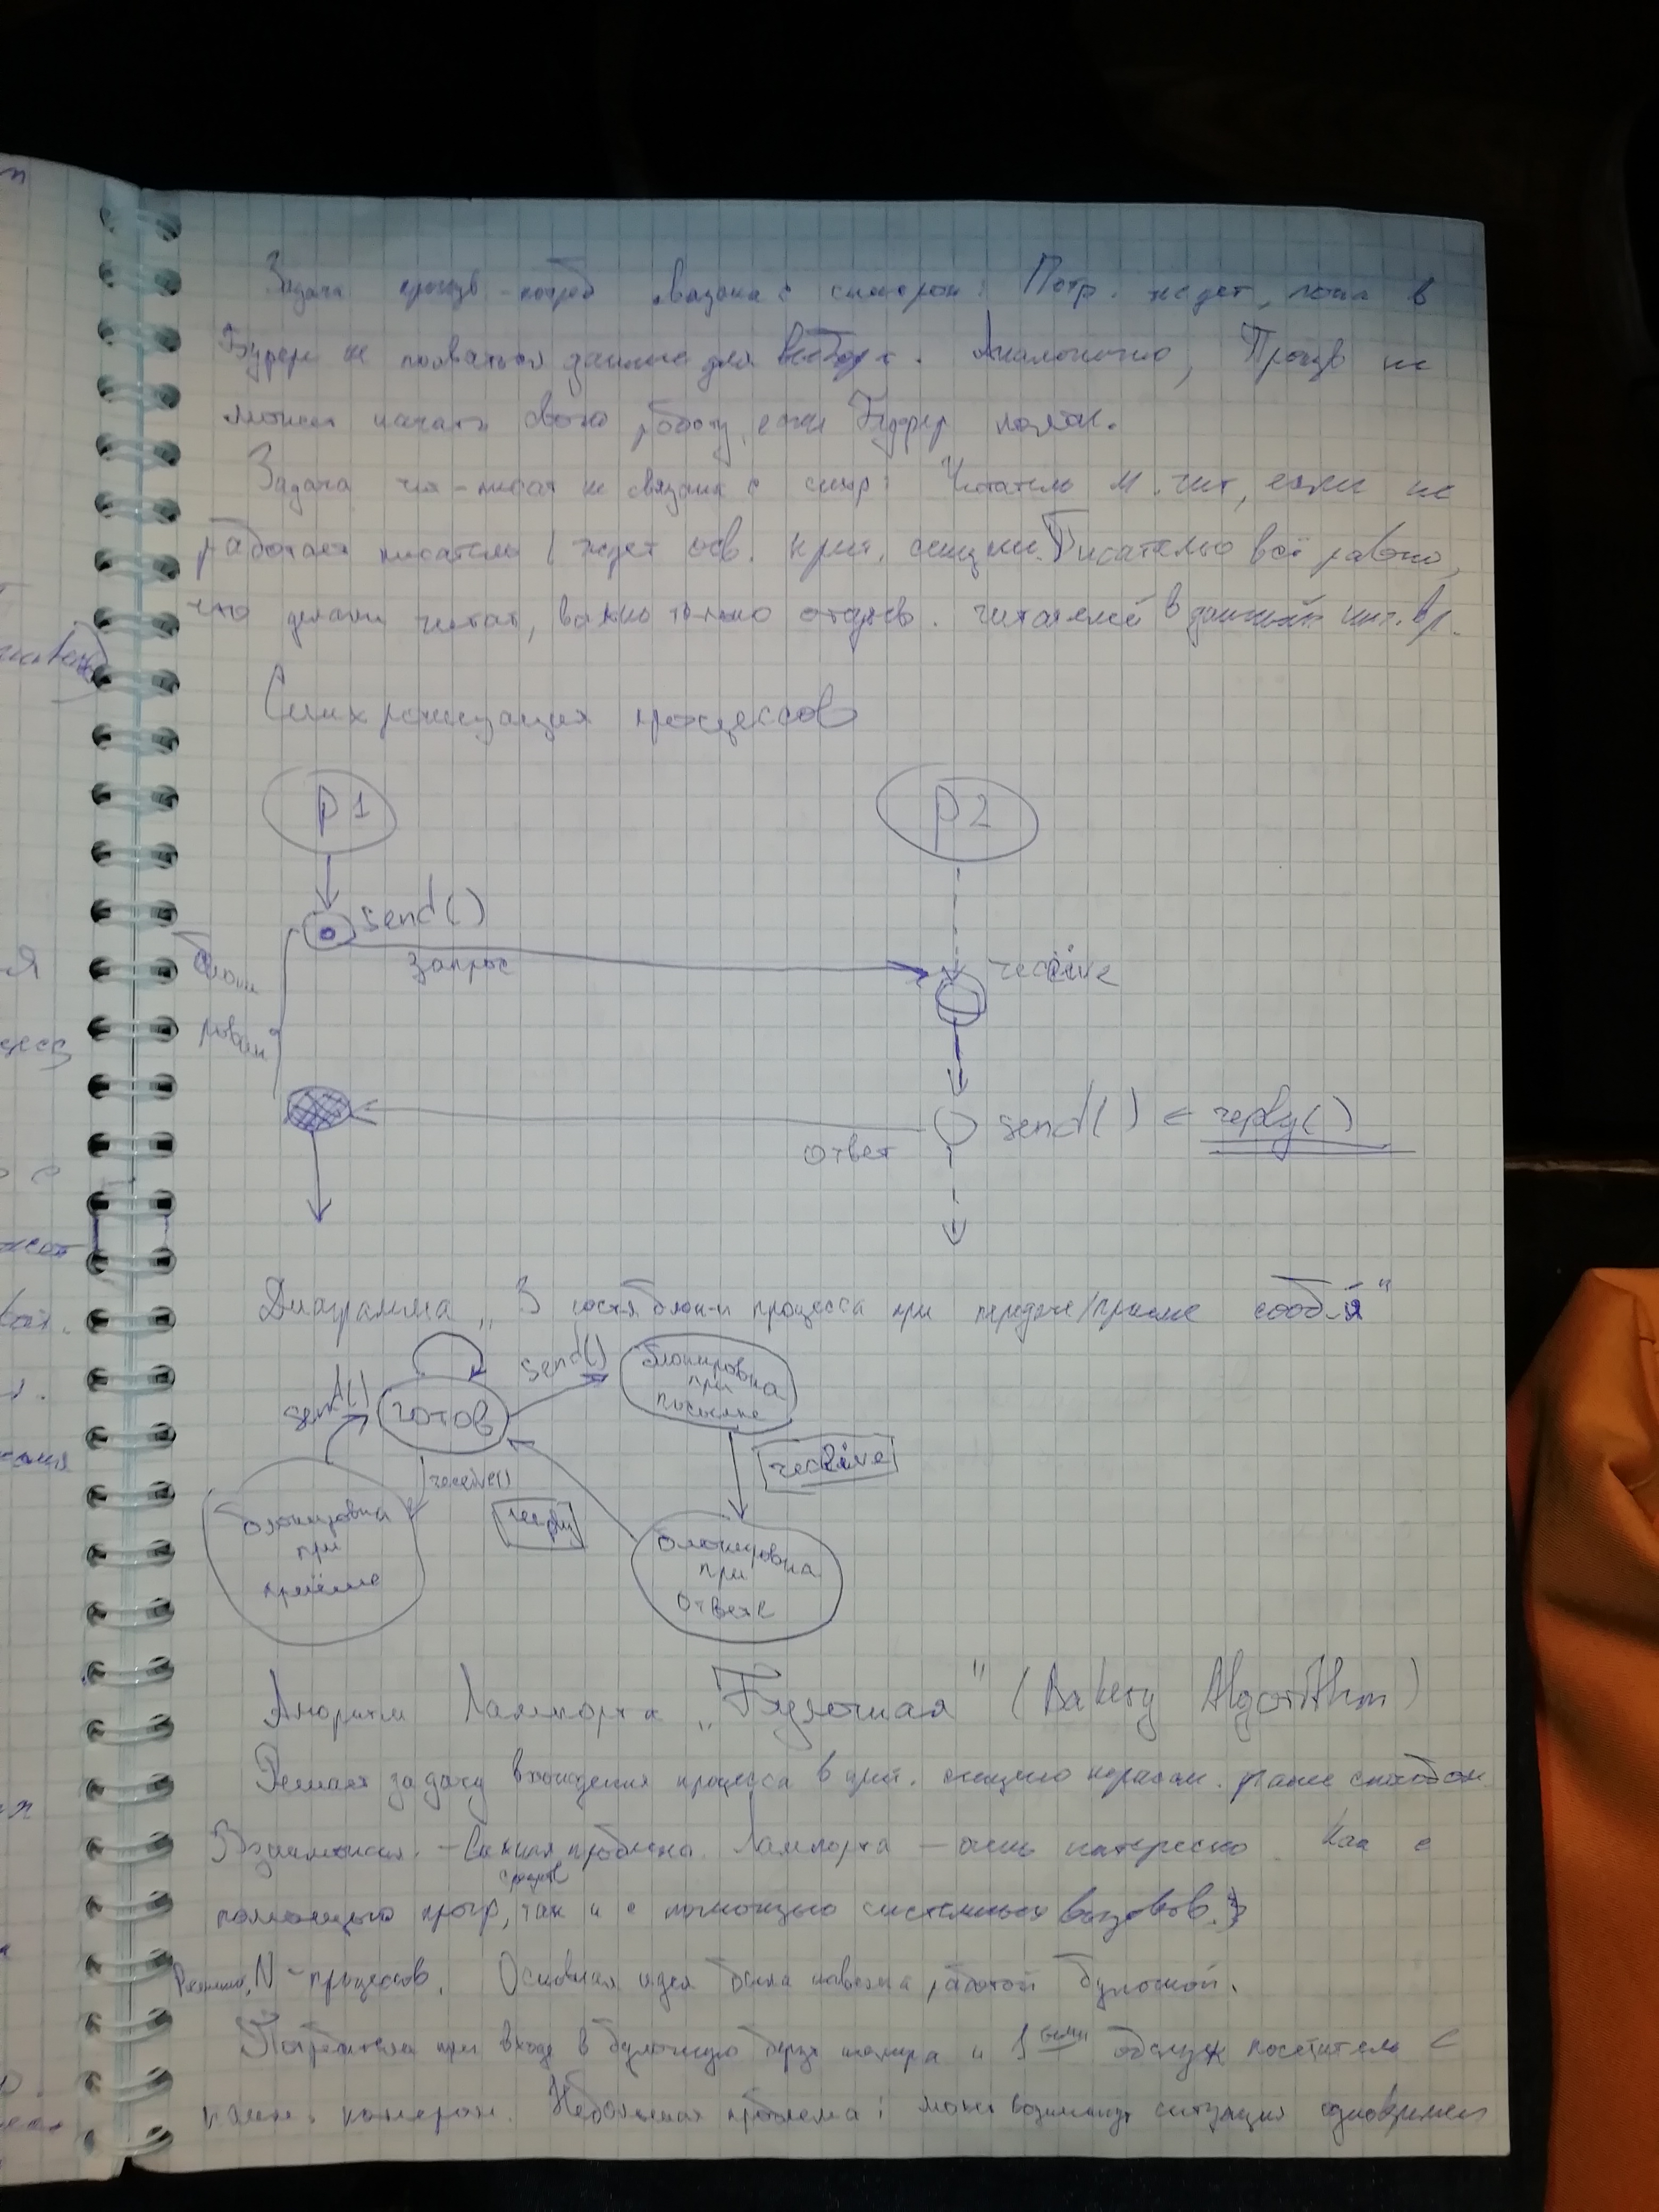 Задача произв-потреб связана с синхрон: Потр. ждет, пока в
буфере не появятся данные для выборк. Аналогично, Произв не
может начать свою работу, если буфер полон.
Задача чит-писат не связана с синхр: Читатель м. чит, если не
работает писатель / ждет осв. крит. секции. Писателю всё равно,
что делали читат, важно только отсутств. читателей в данный инт. вр.
Синхронизация процессов
P1
P2
send()
запрос
receive
блоки
рован
send() = reply()
ответ
Диаграмма „3 сост-я блок-и процесса при передаче/приеме сооб-я"
send()
send()
готов
блокировка
при
посылке
receive()
receive
reply
блокировка
при
приёме
блокировка
при
ответе
Алгоритм Лампорта „Булочная" (Bakery Algorithm)
Решает задачу вхождения процесса в крит. секцию
проблема Лампорта – очень интересно как с
средств
помощью прогр, так и с помощью системных вызовов.
N-процессов. Основная идея была навеяна работой булочной.
при входе в булочную номера и обслуж посетитель с
наим. номером. Небольшая проблема: может возникнуть ситуация одновремен